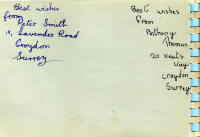 Best wishes
from
Peter Smith
19, Lavender Road
Croydon
Surrey
Best wishes
from
Anthony
Thomas
20 Keats
Way
Croydon
Surrey